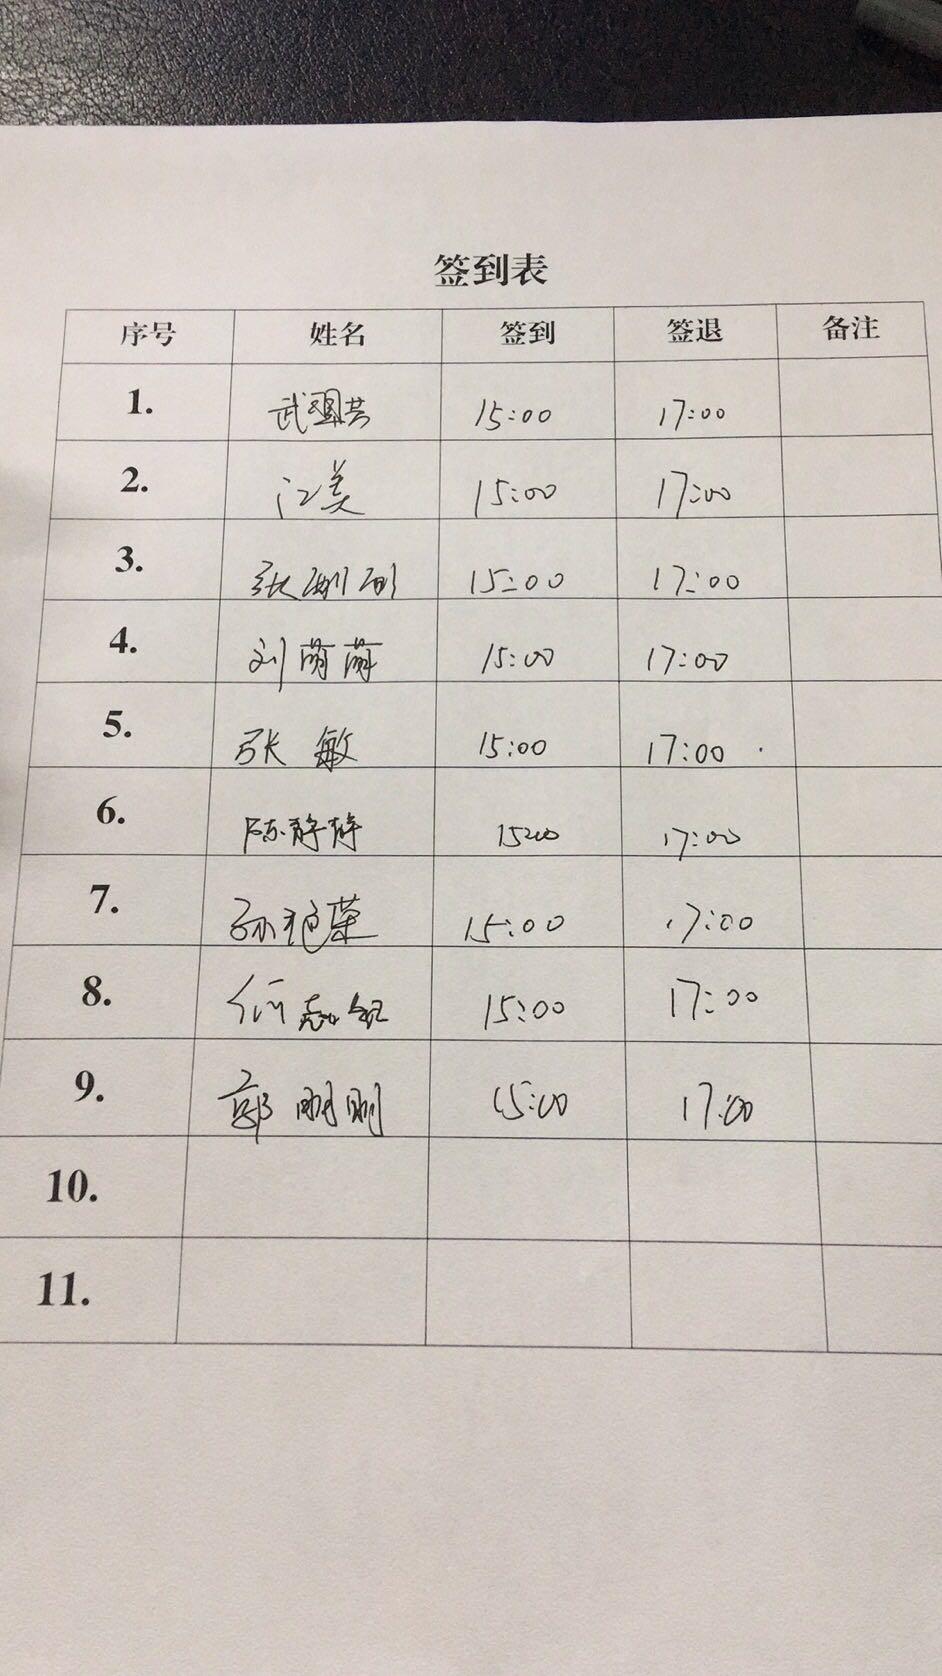 签到表
序号 姓名 签到 签退 备注
1. 15:00 17:00
2. 江美 15:00 17:00
3. 张丽丽 15:00 17:00
4. 刘萌萌 15:00 17:00
5. 张敏 15:00 17:00
6. 陈静静 15:00 17:00
7. 孙艳荣 15:00 17:00
8. 何志银 15:00 17:00
9. 郭明明 15:00 17:00
10.
11.